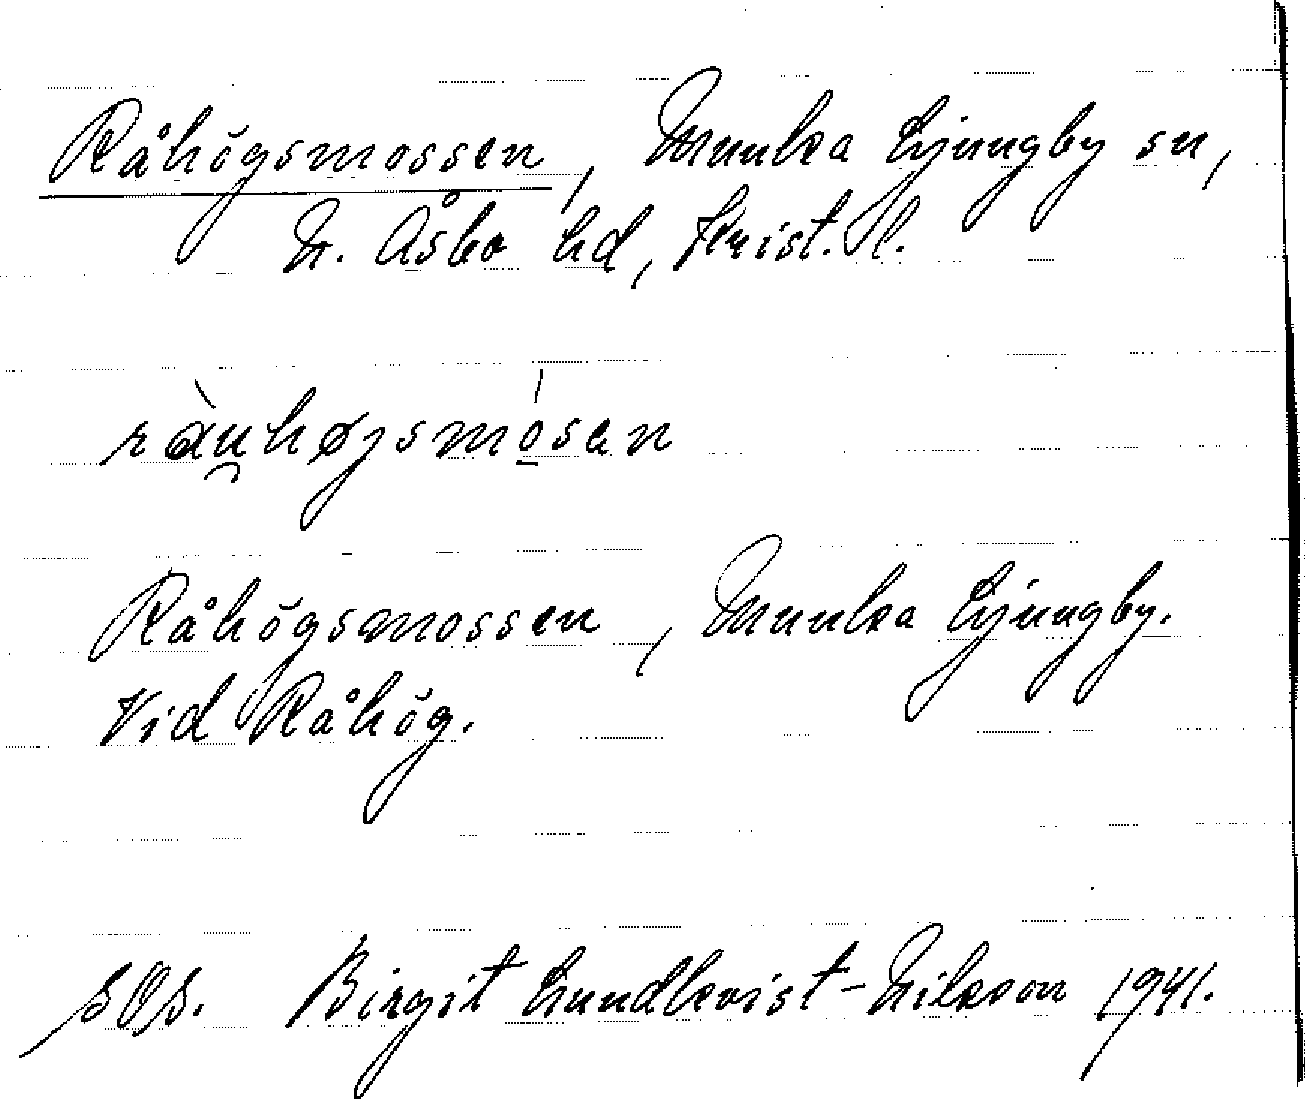 Råhögsmossen, Munka Ljungby sn,
N. Åsbo hd, Krist. l.
ràu̯højsmó̠san
Råhögsmossen, Munka Ljungby.
Vid Råhög.
Birgit Lundkvist-Nilsson 1941.